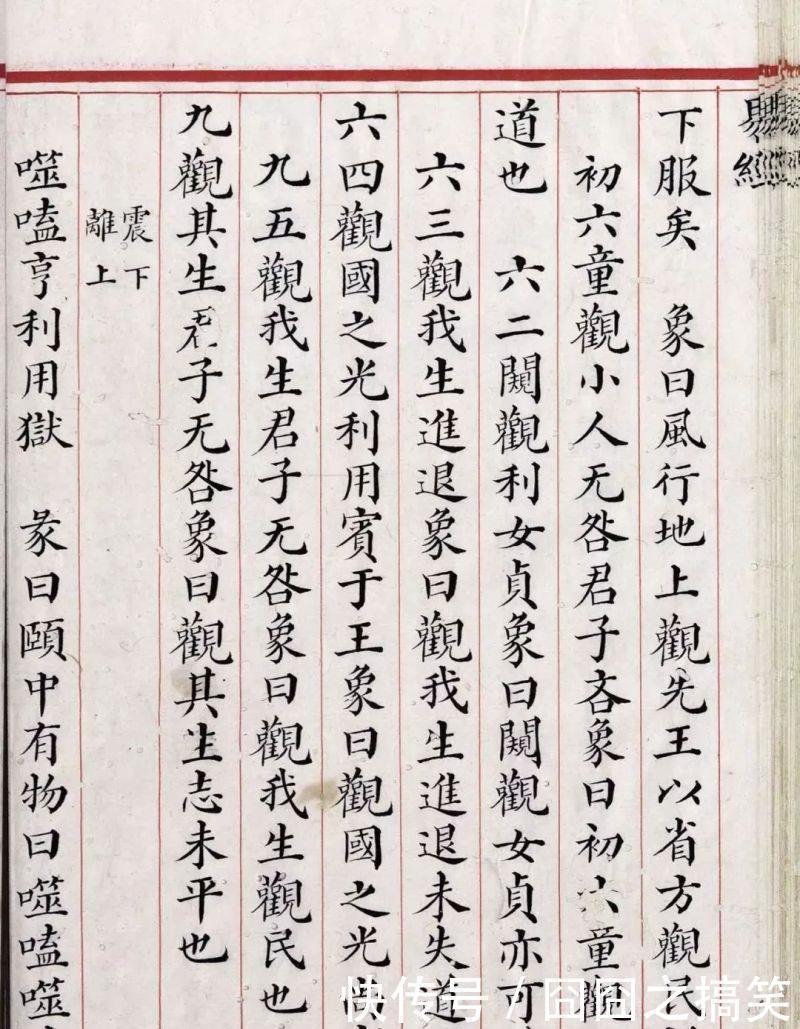 易經
下服矣　象曰風行地上觀先王以省方觀民
初六童觀小人无咎君子吝象曰初六童觀
道也　六二闚觀利女貞象曰闚觀女貞亦可
六三觀我生進退象曰觀我生進退未失道
六四觀國之光利用賓于王象曰觀國之光
九五觀我生君子无咎象曰觀我生觀民也
九觀其生君子无咎象曰觀其生志未平也
震下
離上
噬嗑亨利用獄　彖曰頤中有物曰噬嗑噬
快传号 / 囧囧之搞笑